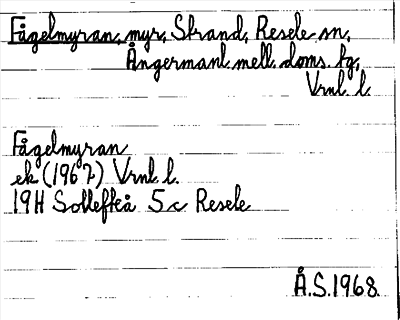 Fågelmyran, myr, Strand, Resele sn,
Ångermanl. mell. doms. tg,
Vrnl. l.
Fågelmyran
ek (1967) Vrnl. l.
19H Sollefteå 5c Resele
Å.S.1968.